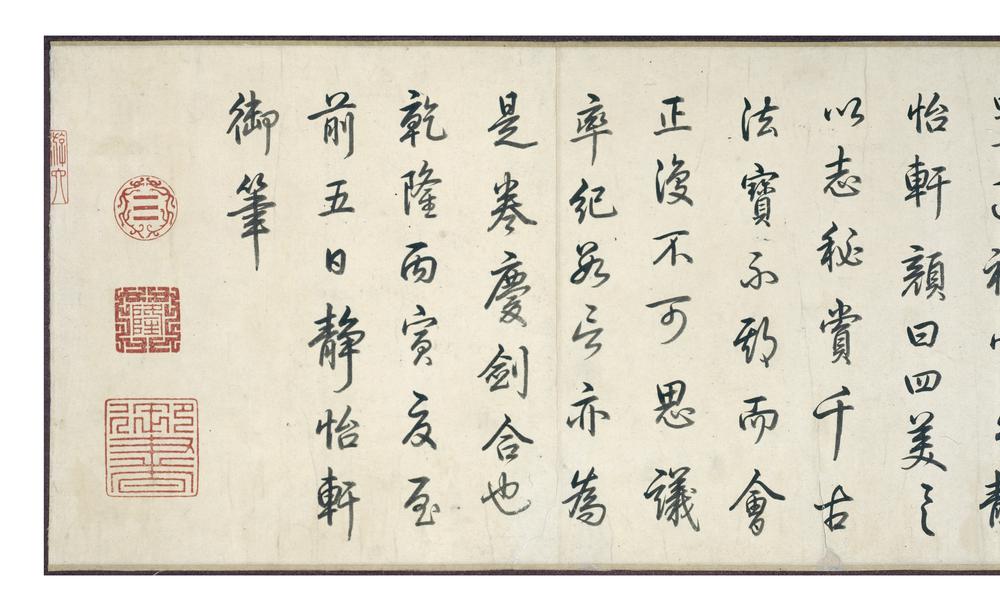 怡軒顏曰四美之
以志秘賞千古
法寶不脛而會
正復不可思議
率紀數言亦為
是卷慶劍合也
乾隆丙寅夏至
前五日靜怡軒
御筆
乾隆